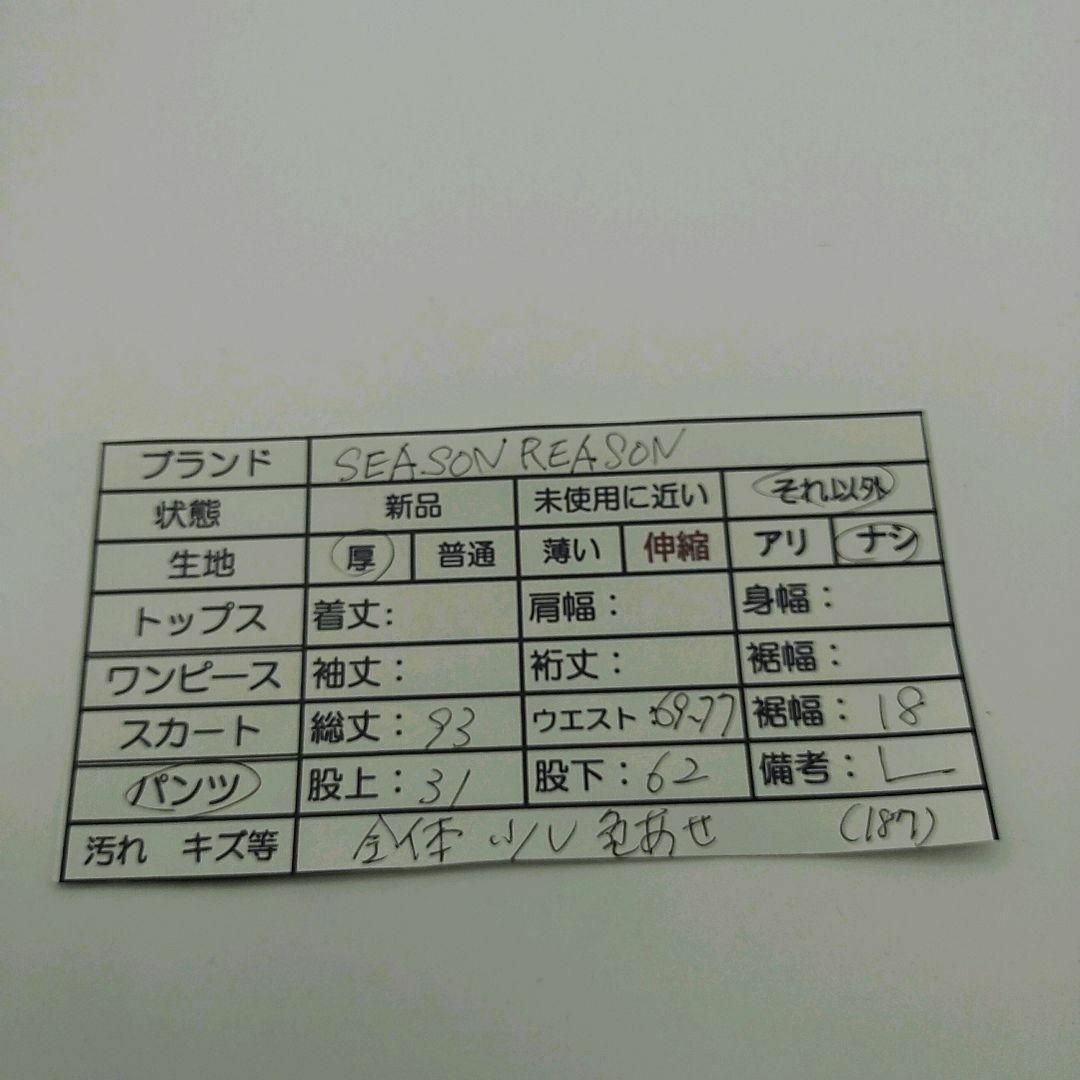 ブランド SEASON REASON
状態 新品 未使用に近い それ以外
生地 厚 普通 薄い 伸縮 アリ ナシ
トップス 着丈: 肩幅: 身幅:
ワンピース 袖丈: 裄丈: 裾幅:
スカート 総丈: 93 ウエスト:69~77 裾幅: 18
パンツ 股上: 31 股下: 62 備考: L
汚れ キズ等 全体 小/U 色あせ (187)